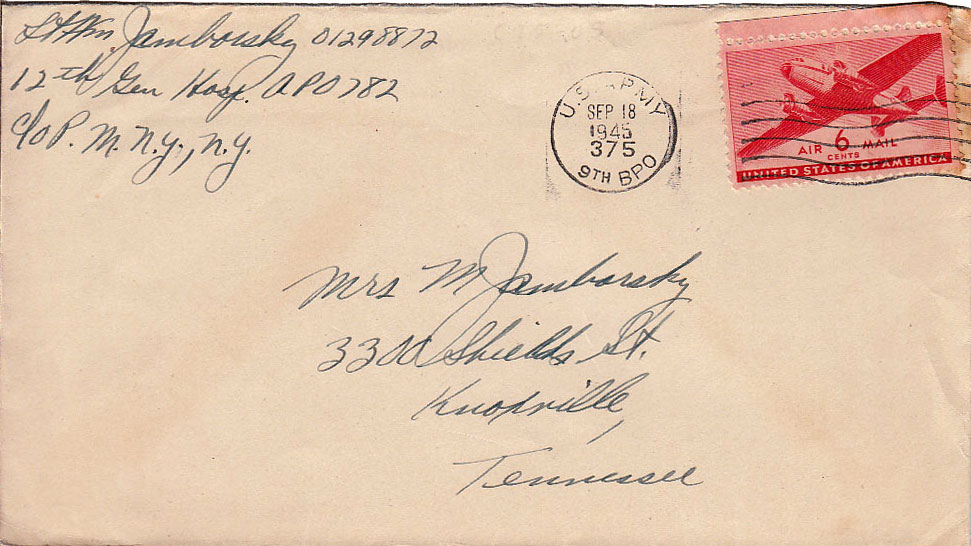 Lt Wm. Jamborsky 01298872
12th Gen Hosp. APO 782
c/o P.M. N.Y., N.Y.
U.S. ARMY
SEP 18
1945
375
9TH BPO
AIR 6 MAIL
CENTS
UNITED STATES OF AMERICA
Mrs M Jamborsky
3300 Shields St.
Knoxville,
Tennessee